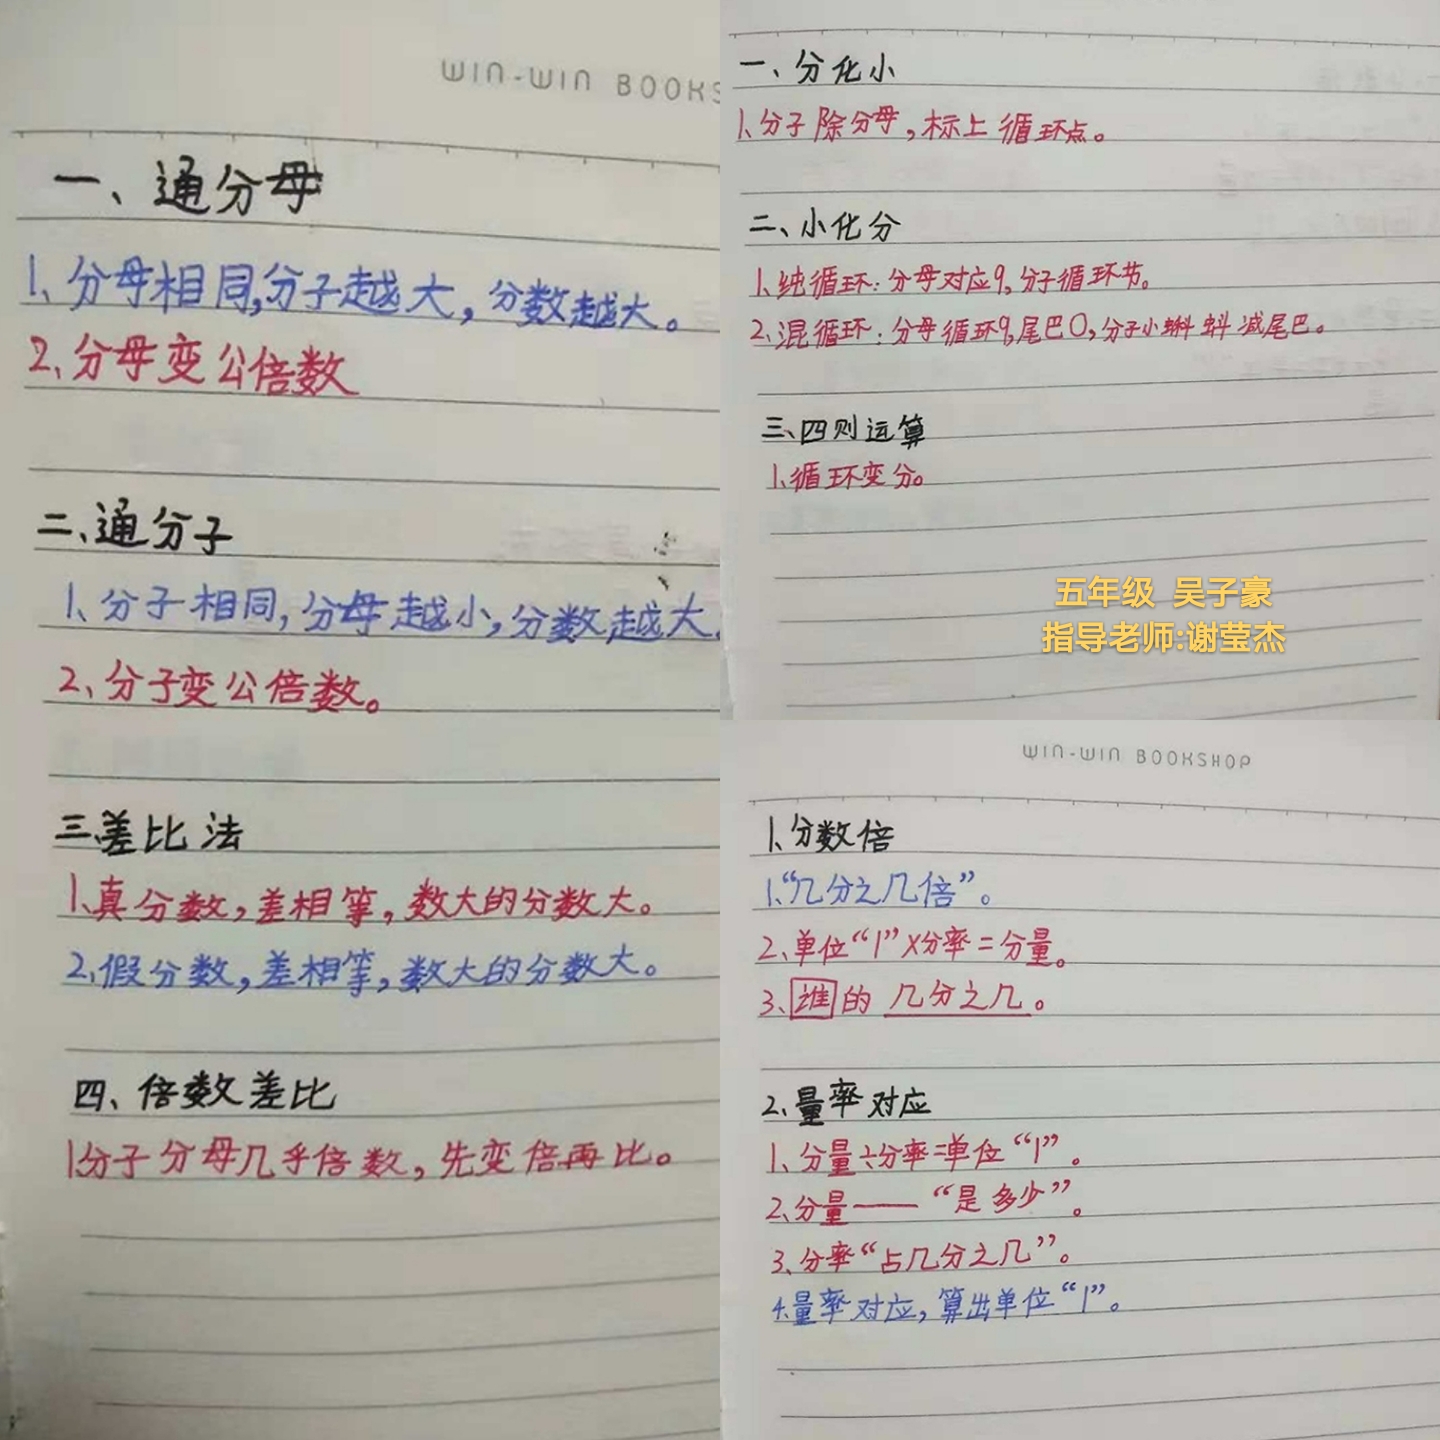 WIN-WIN BOOKS
一、通分母
1、分母相同,分子越大,分数越大。
2、分母变公倍数
二、通分子
1、分子相同,分母越小,分数越大.
2、分子变公倍数。
三、差比法
1.真分数,差相等,数大的分数大。
2.假分数,差相等,数大的分数大。
四、倍数差比
1分子分母几乎倍数,先变倍再比。
一、分化小
1、分子除分母,标上循环点。
二、小化分
1、纯循环:分母对应9,分子循环节。
2、混循环:分母循环9,尾巴0,分子小蝌蚪减尾巴。
三、四则运算
1、循环变分。
五年级 吴子豪
指导老师:谢莹杰
WIN-WIN BOOKSHOP
1、分数倍
1.“几分之几倍”。
2、单位“1”×分率=分量。
3、谁的几分之几。
2、量率对应
1、分量÷分率=单位“1”。
2、分量——“是多少”。
3、分率“占几分之几”。
4.量率对应,算出单位“1”。